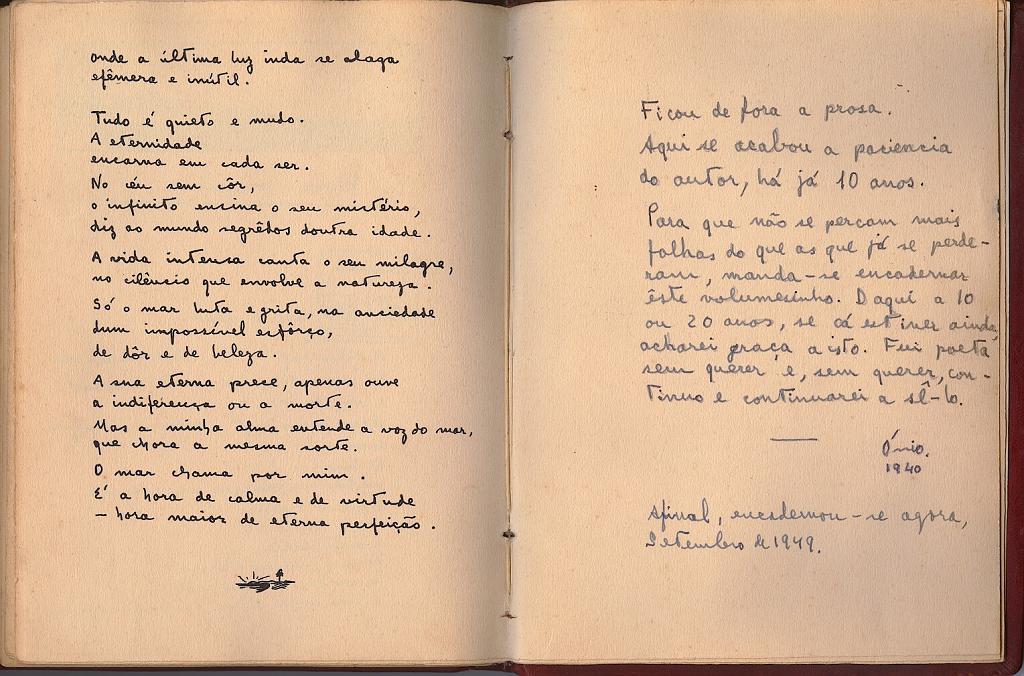 onde a última luz inda se alaga
efêmera e inútil.
Tudo é quieto e mudo.
A eternidade
encarna em cada ser.
No céu sem côr,
o infinito ensina o seu mistério,
diz ao mundo segrêdos doutra idade.
A vida intensa canta o seu milagre,
no cilêncio que envolve a natureza.
Só o mar luta e grita, na anciedade
dum impossível esfôrço,
de dôr e de beleza.
A sua eterna prece, apenas ouve
a indiferença ou a morte.
Mas a minha alma entende a voz do mar,
que chora a mesma sorte.
O mar chama por mim.
É a hora de calma e de virtude
— hora maior de eterna perfeição.
Ficou de fora a prosa.
Aqui se acabou a paciencia
do autor, há já 10 anos.
Para que não se percam mais
folhas do que as que já se perde-
ram, manda-se encadernar
êste volumesinho. Daqui a 10
ou 20 anos, se cá estiver ainda,
acharei graça a isto. Fui poeta
sem querer e, sem querer, con-
tinuo e continuarei a sê-lo.
Ónio.
1940
Afinal, encadernou-se agora,
Setembro de 1949.